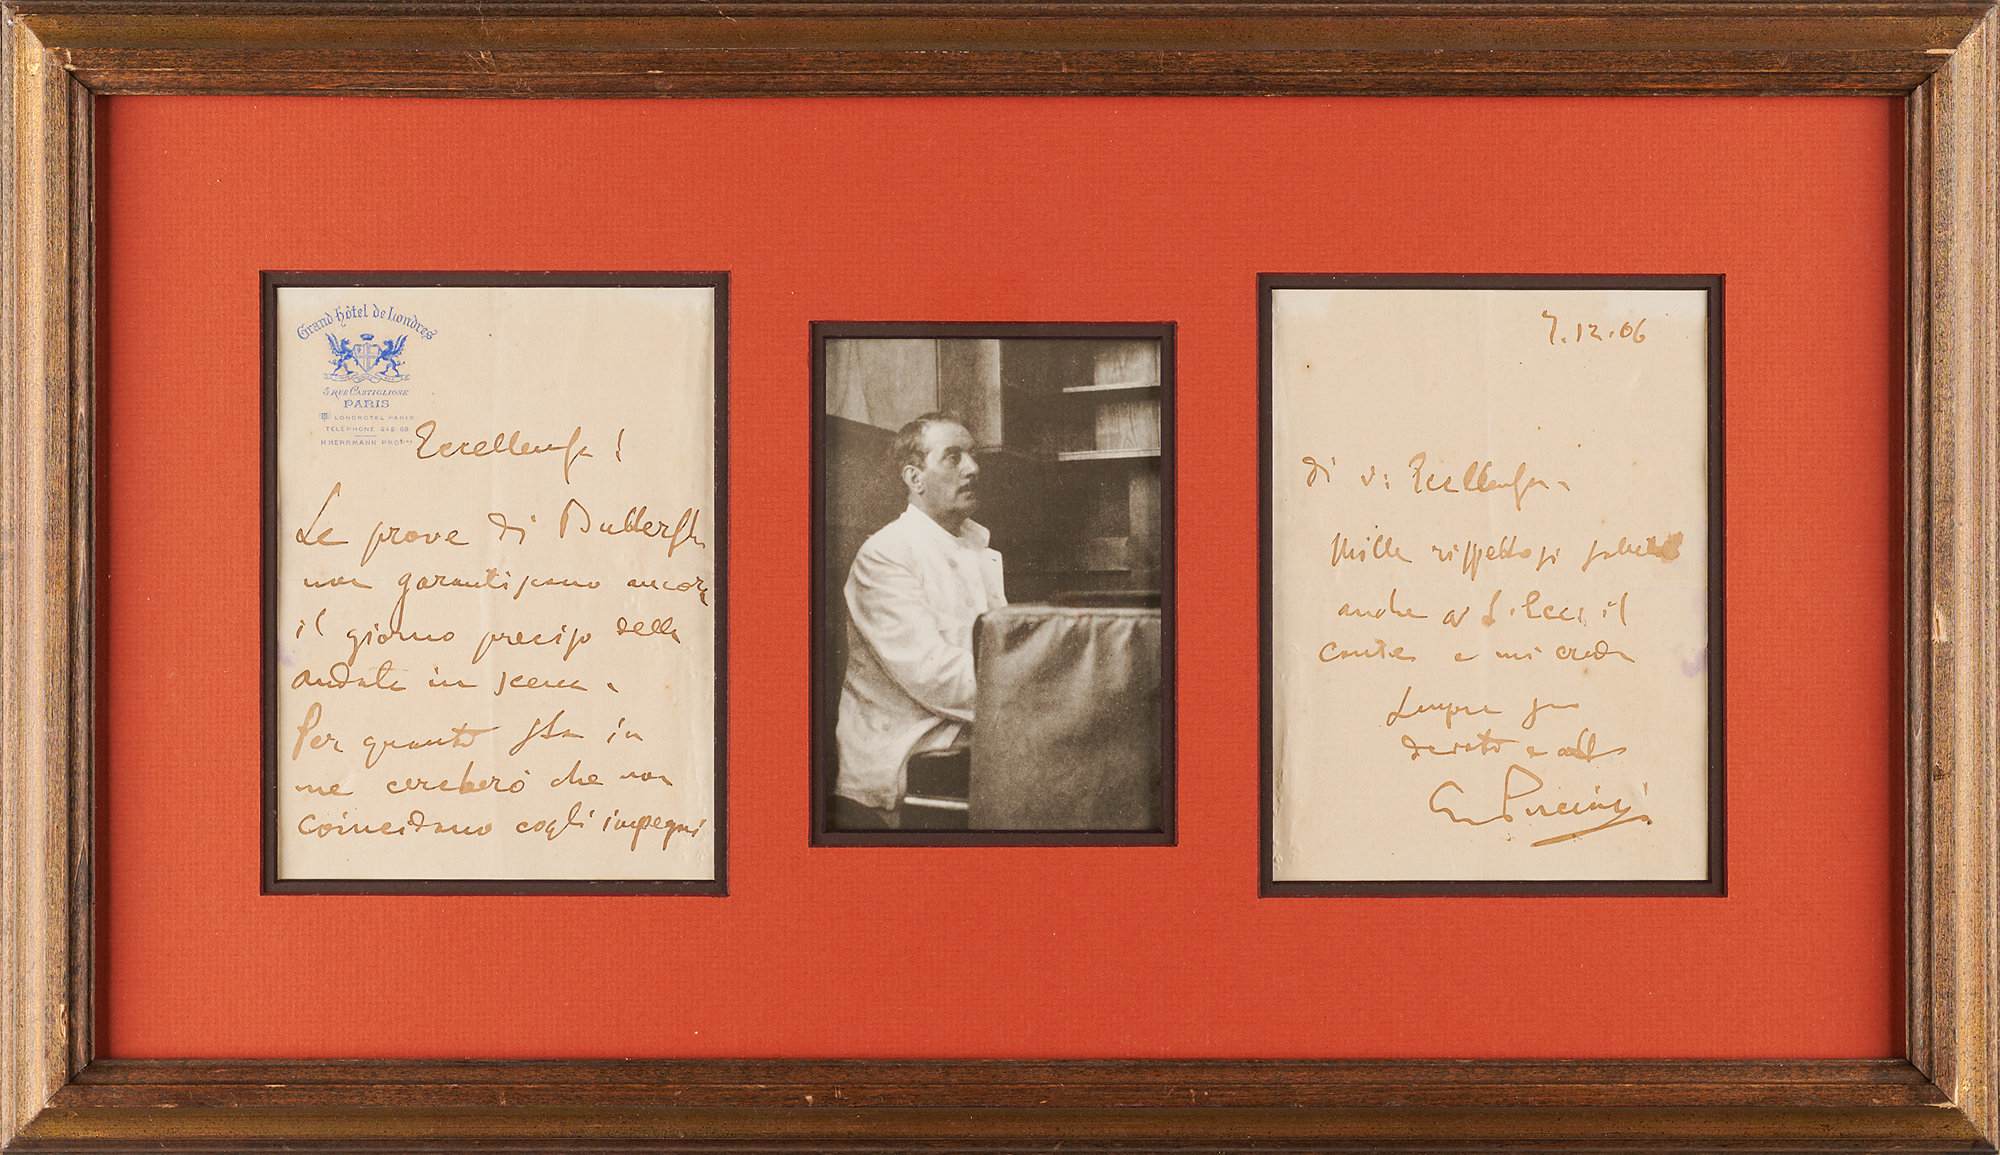 Grand Hôtel de Londres
5 RUE CASTIGLIONE
PARIS
LONDHOTEL PARIS
TÉLÉPHONE
H. HERRMANN PROP
Eccellenza!
Le prove di Butterfly
non garantiscono ancora
il giorno preciso della
andata in scena.
Per quanto sta in
me cercherò che non
coincidano cogli impegni
7.12.06
di V: Eccellenza.
Mille rispettosi saluti
anche a S. Ecc. il
conte e mi creda
sempre suo
devoto e
G Puccini